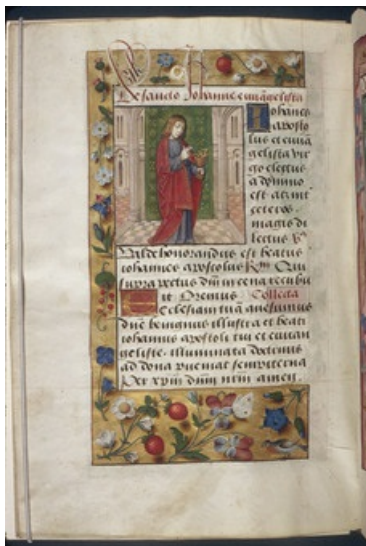 De sancto Iohanne euāgelista
Iohanes
aposto
lus et euā
gelista vir
go electus
a domino
est atq̄ int̄
ceteros
magis di
lectus V̄s
Valde honorandus est beatus
iohannes apostolus R̄m̄ Qui
supra pectus dñi in cena recubu
it Oremus Collecta
Ecclesiam tuā quesumus
dñe benignus illustra et beati
iohannis apostoli tui et euuan
geliste illuminata doctrinis
ad dona pueniat sempiterna
Per xp̄m dñm nr̄m amen